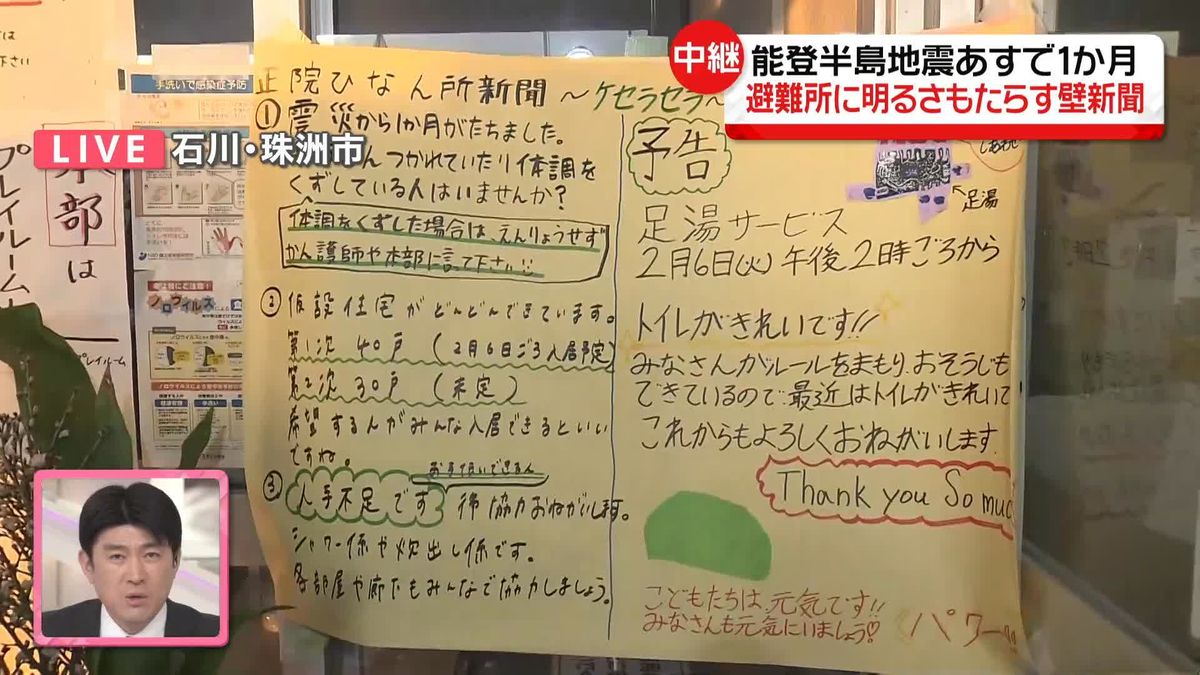 中継
能登半島地震あすで1か月
避難所に明るさもたらす壁新聞
LIVE
石川・珠洲市
正院ひなん所新聞 〜ケセラセラ〜
① 震災から1か月がたちました。
んつかれていたり体調を
くずしている人はいませんか?
体調をくずした場合は、えんりょうせず
かん護師や本部に言って下さい!!
② 仮設住宅がどんどんできています。
第1次 40戸 (2月6日ごろ入居予定)
第2次 30戸 (未定)
希望する人がみんな入居できるといい
ですね。
③ 人手不足です
協力おねがいします。
シャワー係や炊出し係です。
各部屋や廊下もみんなで協力しましょう。
予告
足湯
足湯サービス
2月6日(火) 午後2時ごろから
トイレがきれいです!!
みなさんがルールをまもり、おそうじも
できているので最近はトイレがきれいで
これからもよろしくおねがいします.
Thank you So muc
こどもたちは、元気です!!
みなさんも元気にいましょう♡
パワー!!
手洗いで感染症予防
ノロウイルス
本部は
プレイルーム
プレイルーム